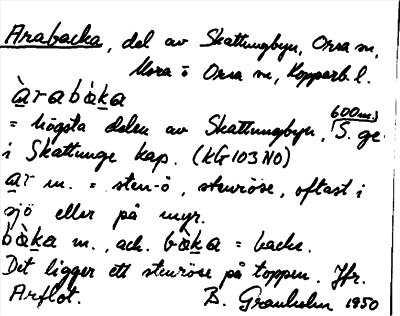 Arabacka, del av Skattungbyn, Orsa sn,
Mora o Orsa sn, Kopparb. l.
àrabàka
600 m.
= högsta delen av Skattungbyn, S. ge.
i Skattunge kap. (KG 103 NO)
ar m. = sten-ö, stenröse, oftast i
sjö eller på myr.
bàka m., ack. bàka = backe.
Det ligger ett stenröse på toppen. Jfr.
Arflot. B. Granholm 1950